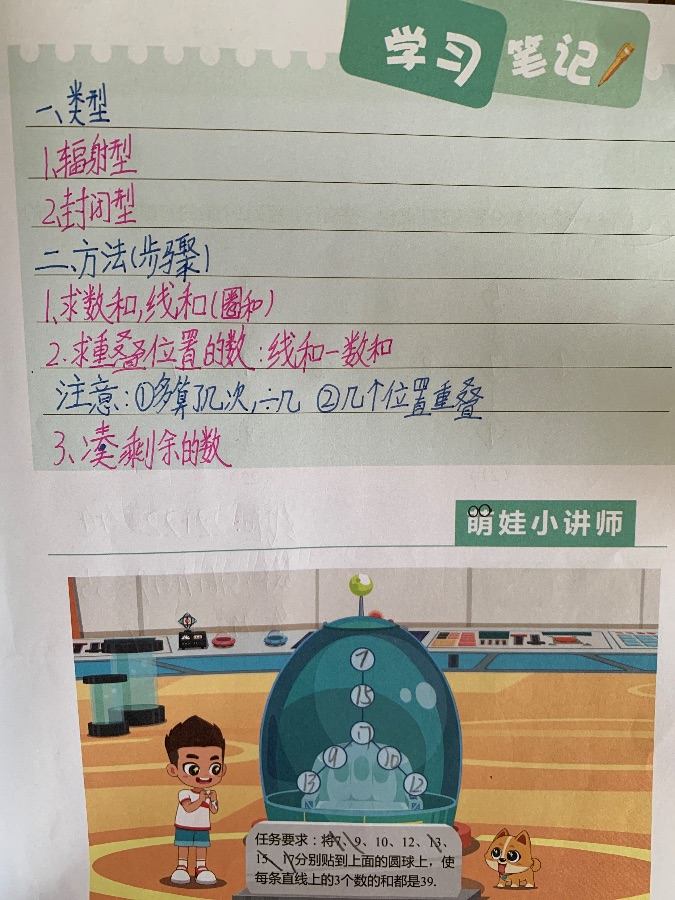 学习笔记
一、类型
1、辐射型
2、封闭型
二、方法(步骤)
1、求数和,线和(圈和)
2.求重叠位置的数:线和-数和
注意:①多算了几次,÷几 ②几个位置重叠
3、凑剩余的数
萌娃小讲师
7
15
17
9 10
13 12
任务要求:将7、9、10、12、13、
15、17分别贴到上面的圆球上,使
每条直线上的3个数的和都是39.